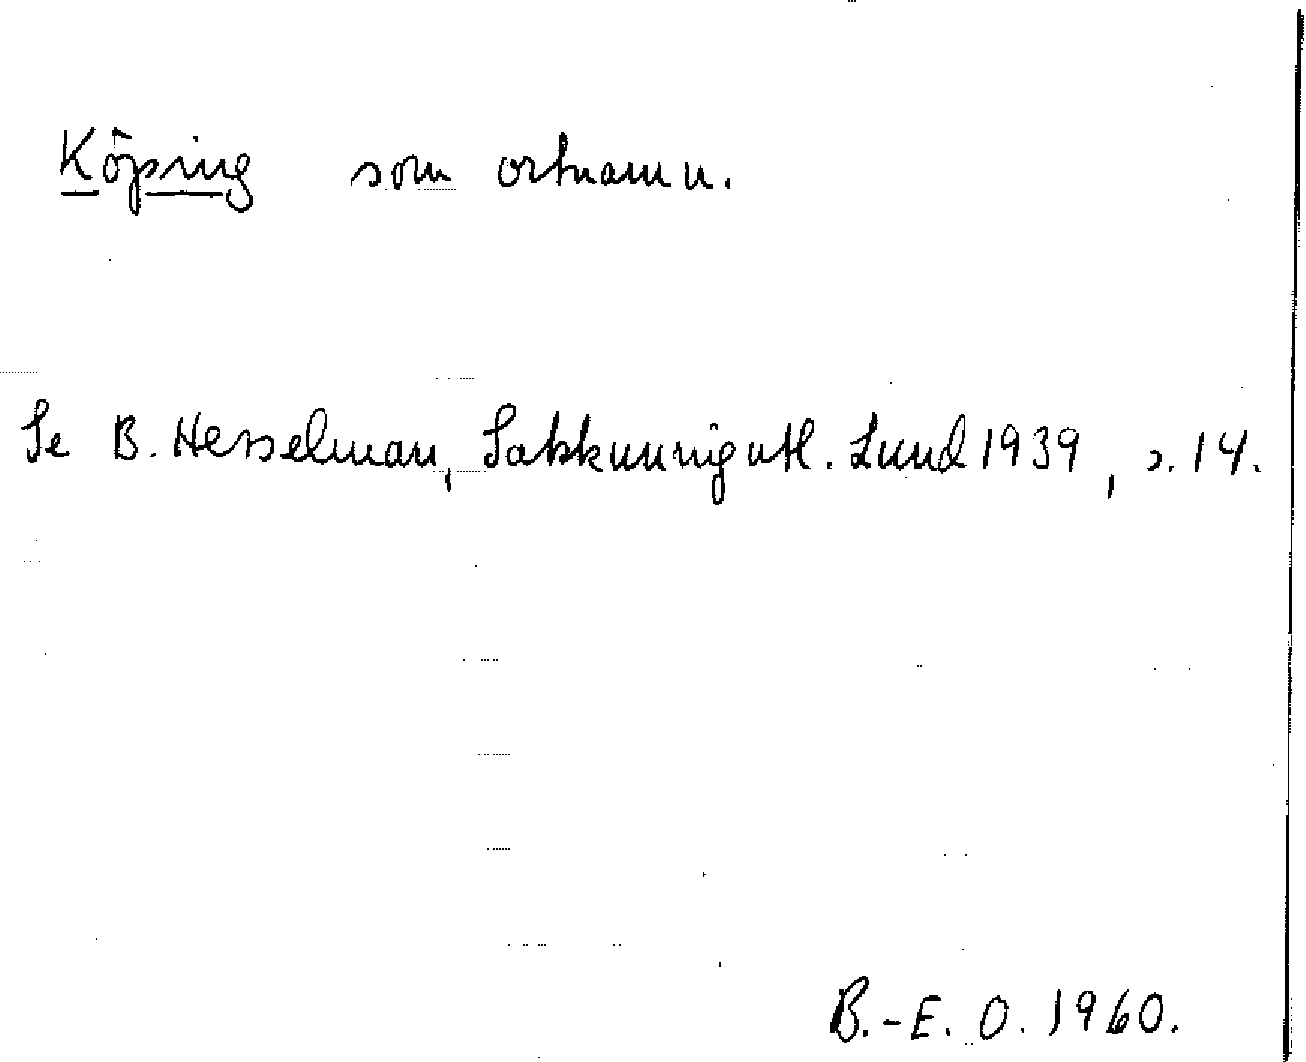 Köping som ortnamn.
Se B. Hesselman, Sakkunnigutl. Lund 1939, s. 14.
B.-E. O. 1960.